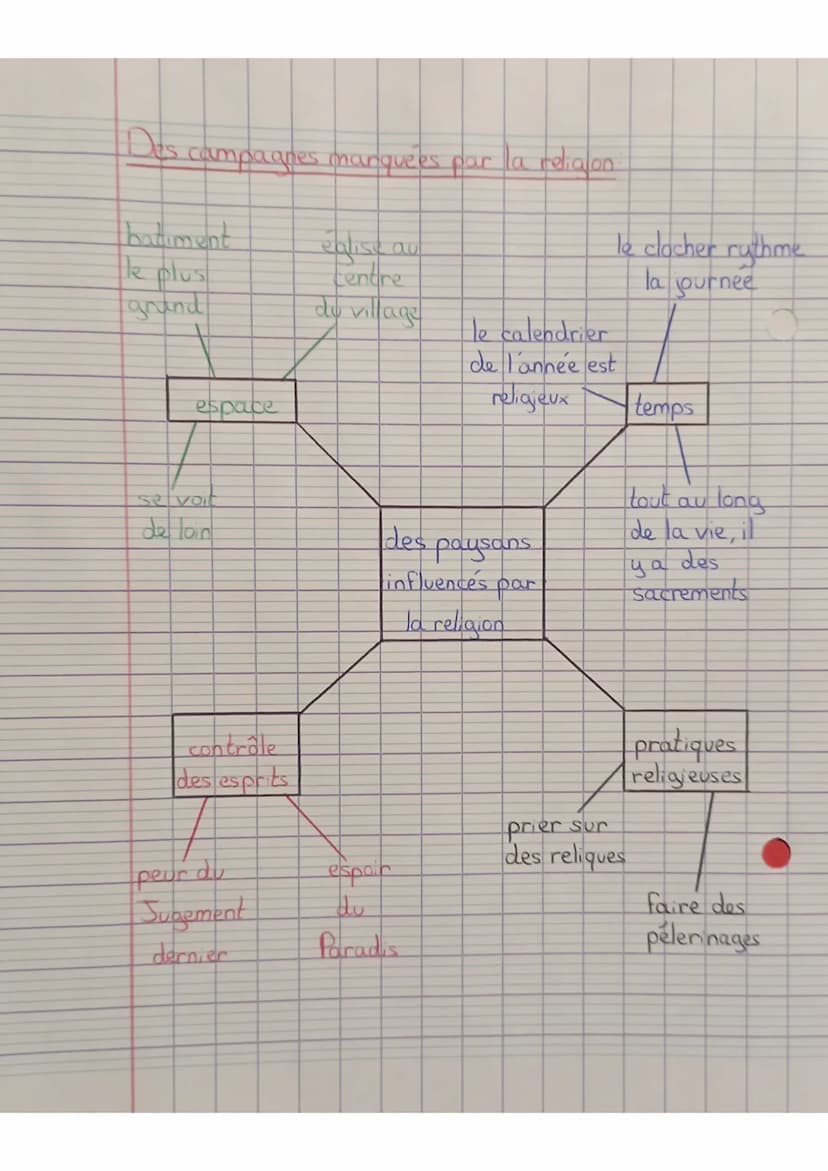 Des campagnes marquées par la religion
batiment
le plus
grand
église au
centre
du village
espace
se voit
de loin
le clocher rythme
la journée
le calendrier
de l'année est
religieux
temps
tout au long
de la vie, il
y a des
sacrements
des paysans
influencés par
la religion
contrôle
des esprits
peur du
Jugement
dernier
espoir
du
Paradis
pratiques
religieuses
prier sur
des reliques
faire des
pélerinages